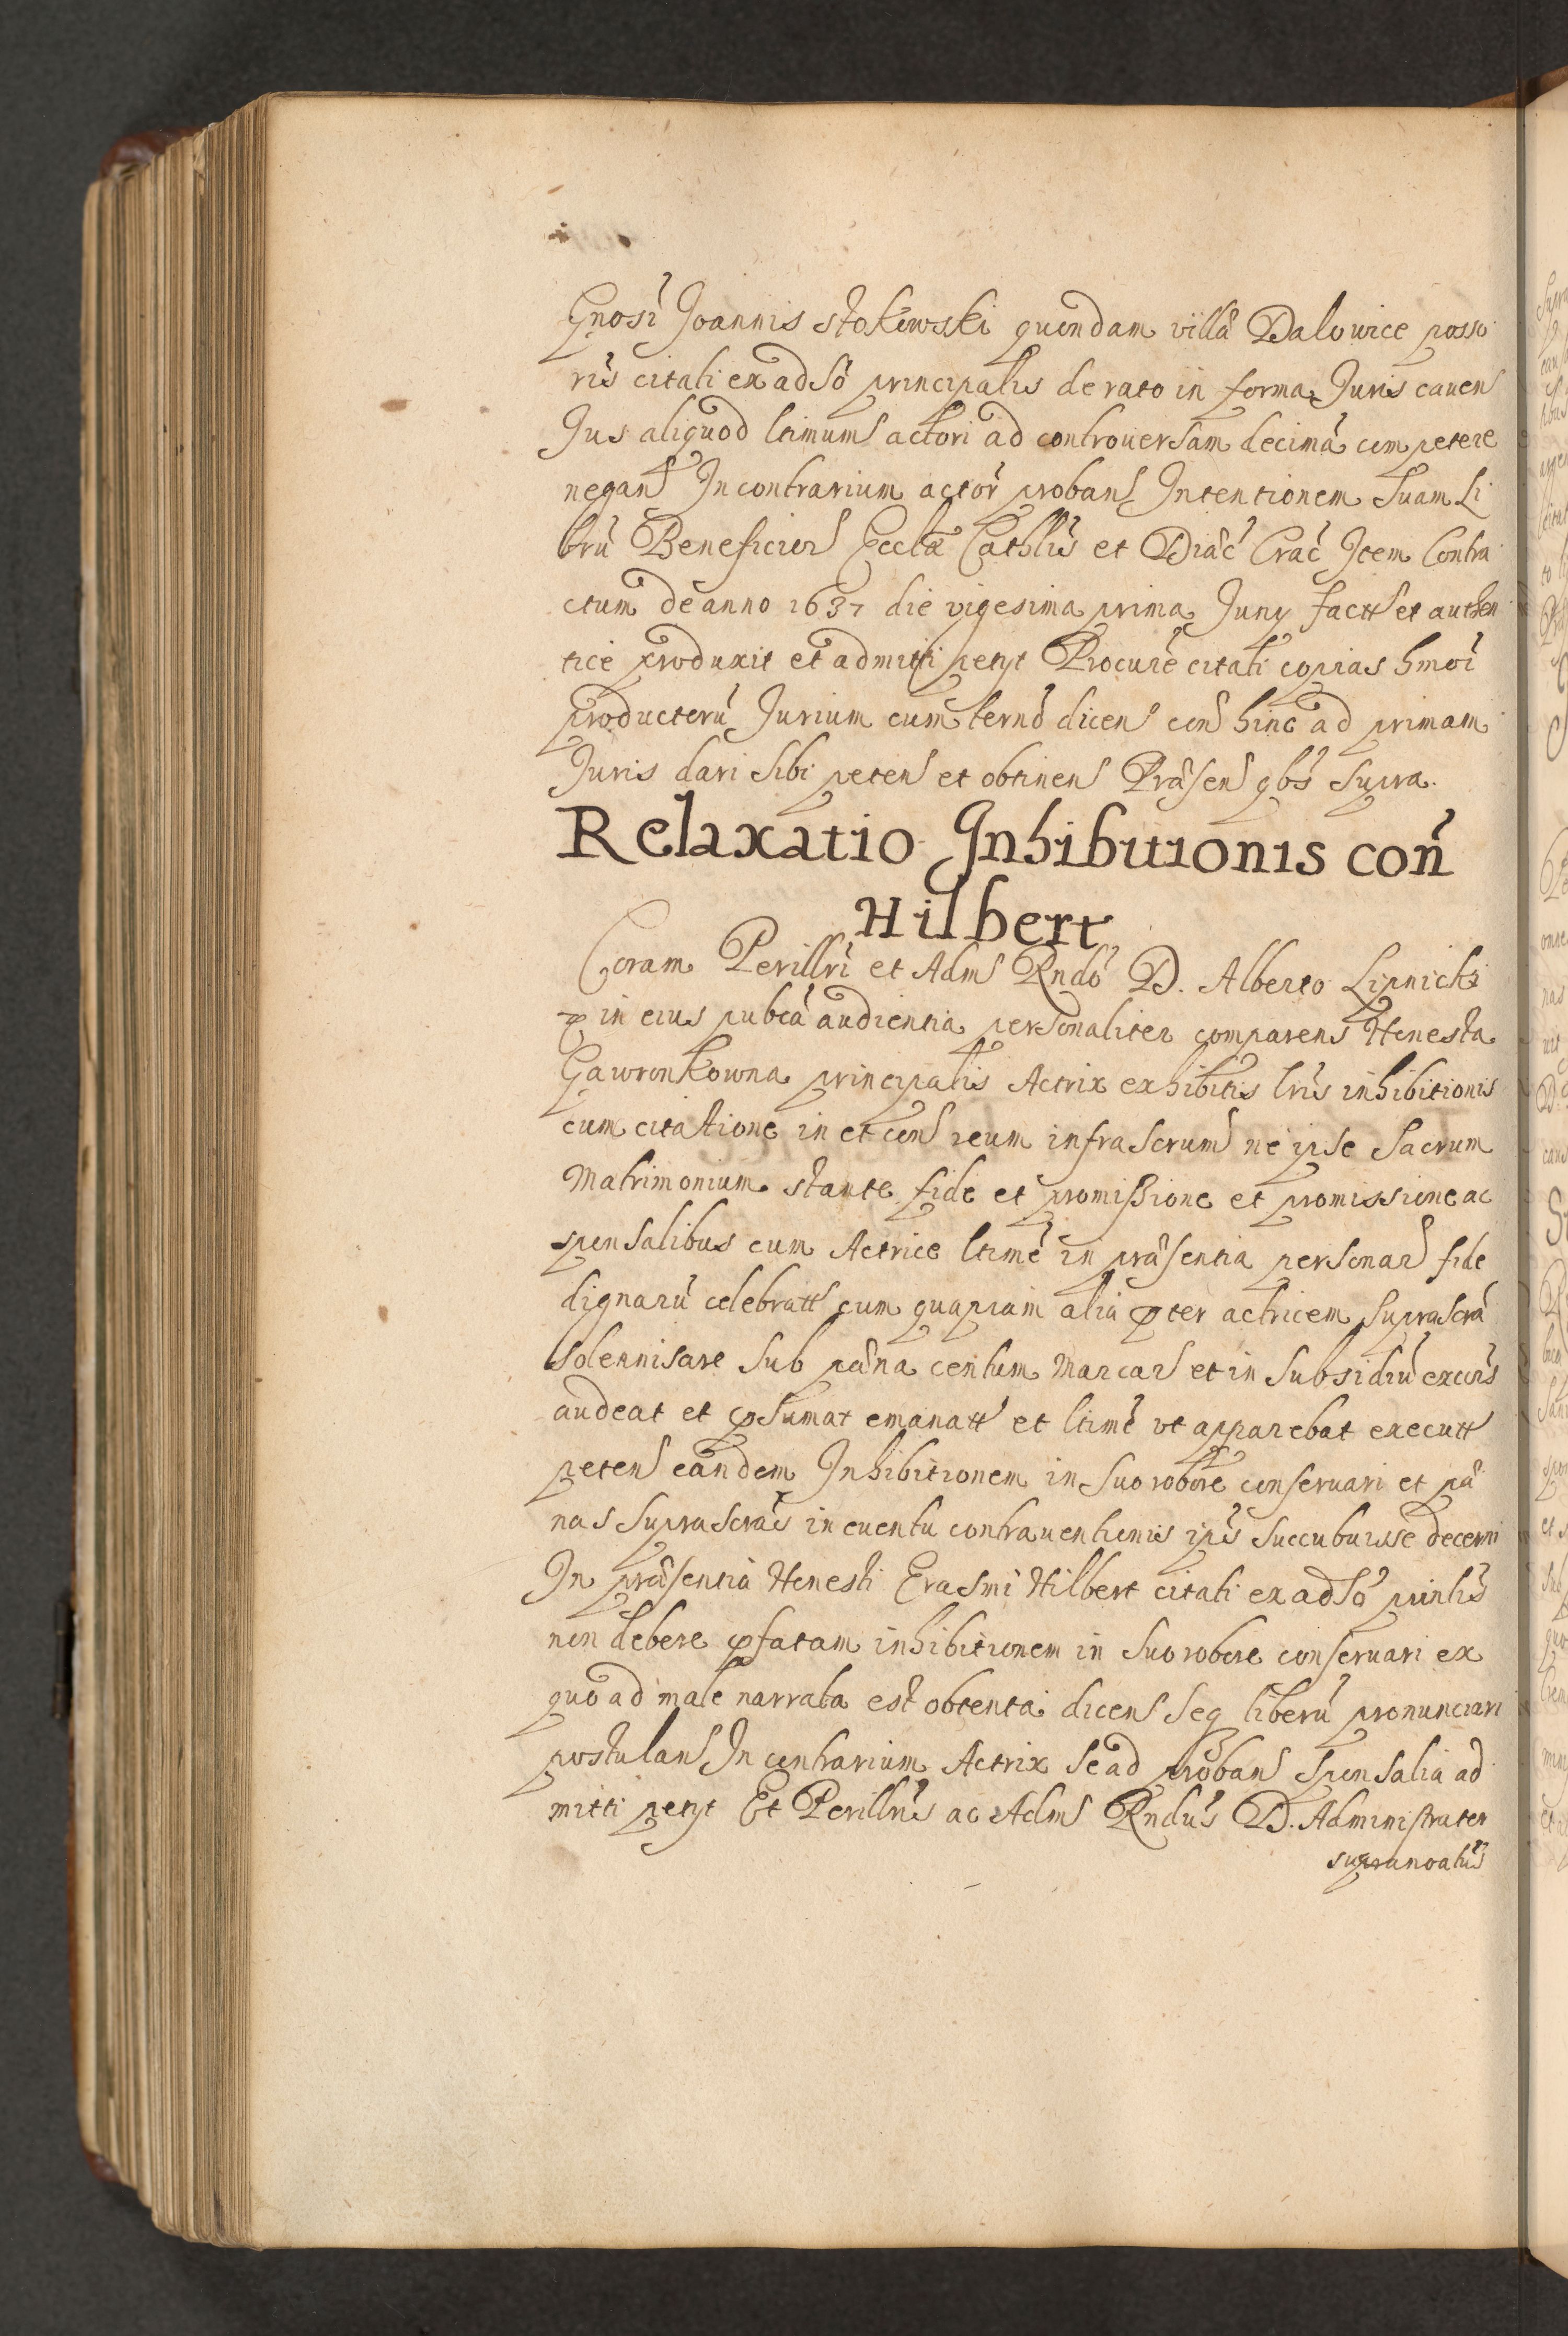 Gnosi Joannis Stokowski quondam villæ Dalowice posso
ris citati ex adso principalis de rato in forma Juris caven
Jus aliquod ltimum actori ad controuersam decimā competere
negans In contrarium actor probans Intentionem Suam Li
brū Beneficior Ecclæ Cathlis et Diæc Crac Item Contra
ctum de anno 1637 die vigesima prima Juny fact et authen
tice produxit et admitti petyt Procure citati copias hmoi
productorū Jurium cum termo dicens con hinc ad primam
Juris dari Sibi petens et obtinens Præsen qbs Supra.
Relaxatio Inhibitionis con
Hilbert
Coram Perillri et Adm Rndo D. Alberto Lipnicki
in eius pubca audientia personaliter comparens Honesta
Gawronkowna principalis Actrix exhibitis lris inhibitionis
cum citatione in et con reum infrascrum ne ipse Sacrum
Matrimonium stante fide et promissione et promissione ac
sponsalibus cum Actrice ltime in præsentia personar fide
dignarū celebratt cum quapiam alia pter actricem Suprascrā
Solennisare Sub pæna centum Marcar et in Subsidiū excois
audeat et psumat emanatt et ltime vt apparebat executt
petens eandem Inhibitionem in Suo robore conservari et pæ
nas Suprascras in euentu contrauentionis ips Succubuisse decerni
In præsentia Honesti Erasmi Hilbert citati ex adso prinlis
non debere pfatam inhibitionem in Suo robore conservari ex
quo ad male narrata est obtenta dicens Seq liberū pronunciari
postulans In contrarium Actrix Se ad proban Sponsalia ad
mitti petyt Et Perillris ac Adm Rndus D. Administrator
supranoatus